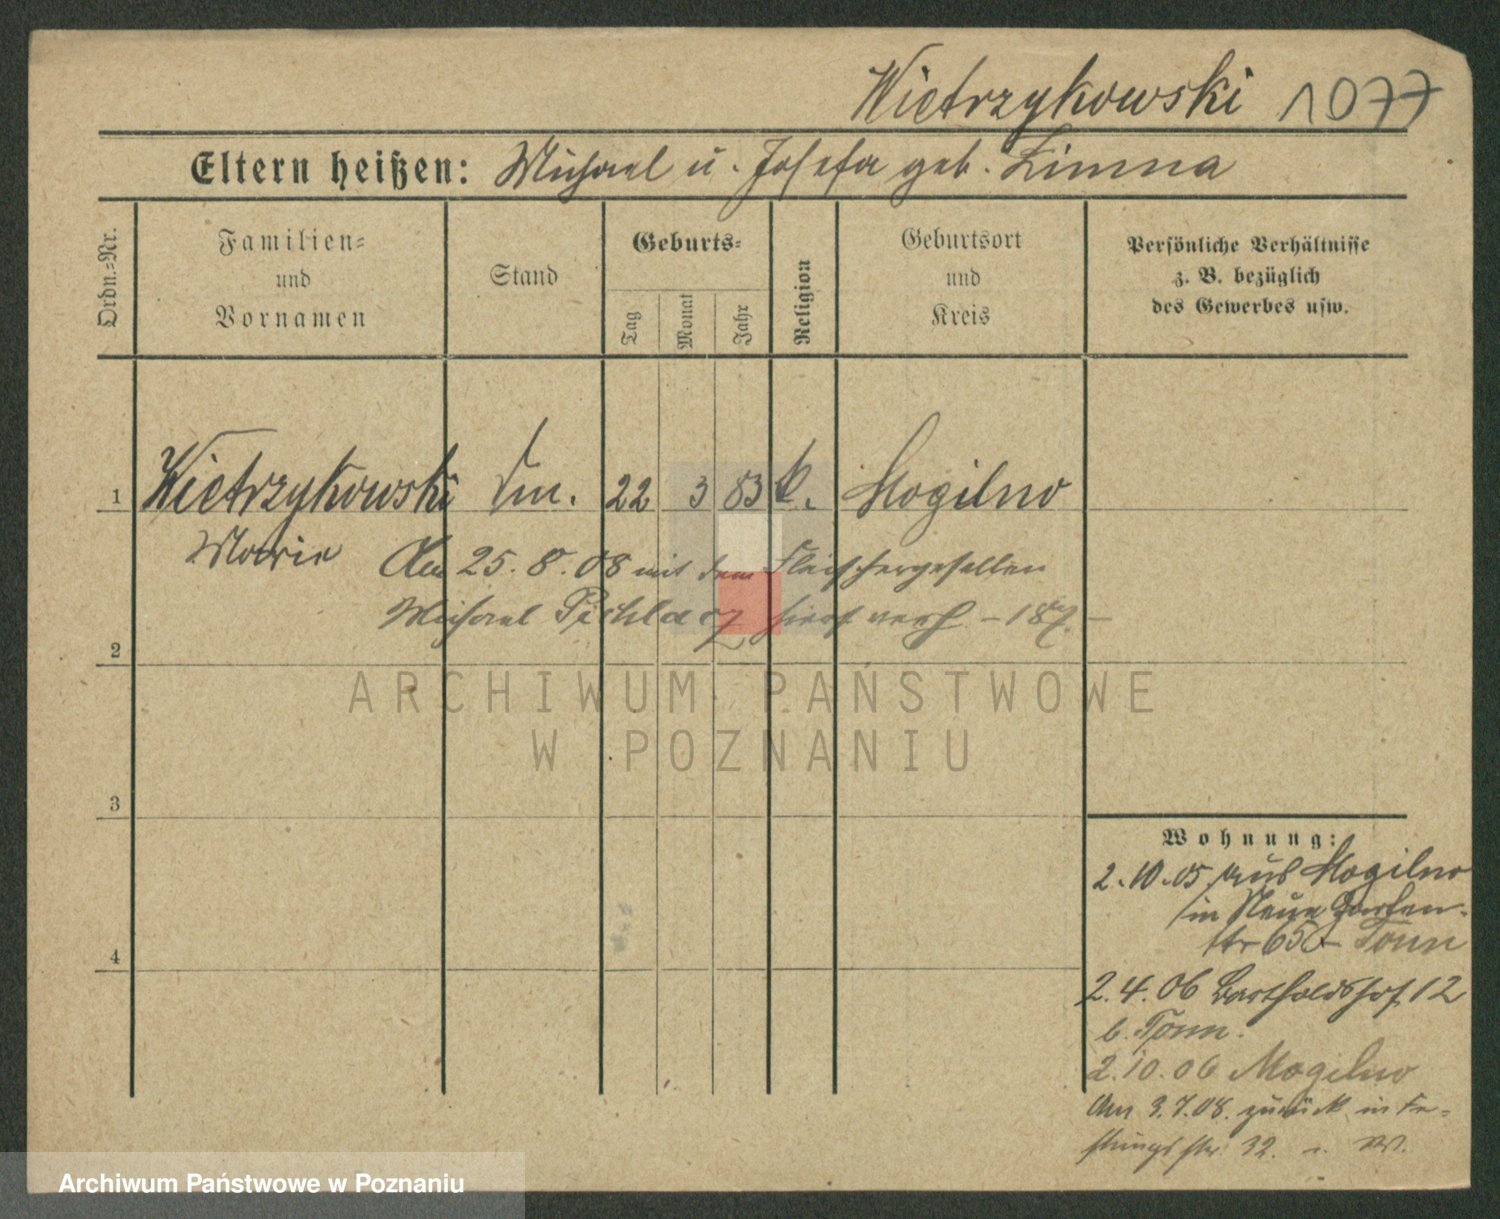 Wietrzykowski 1077
Eltern heißen: Michael u. Josefa geb. Zimna
Ordn.=Nr.
Familien=
und
Vornamen
Stand
Geburts=
Tag
Monat
Jahr
Religion
Geburtsort
und
Kreis
Persönliche Verhältnisse
z. B. bezüglich
des Gewerbes usw.
1 Wietrzykowski 22 3 83 k. Mogilno
Marie
Am 25.8.08 mit dem Fleischergesellen
Michael hier verh
2
ARCHIWUM PAŃSTWOWE
W POZNANIU
3
4
Wohnung:
2.10.05 aus Mogilno
in Neue Garten-
str 65 Tonn
2.4.06 Bartholdshof 12
b. Tonn.
2.10.06 Mogilno
Am 3.7.08. zurück in Fe-
stungsstr. 32.
Archiwum Państwowe w Poznaniu